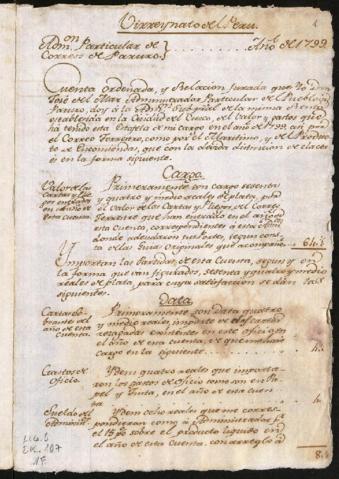 Virreynato del Peru.
Adm.on Particular de
Correos de Paruro.
Año de 1799
Cuenta ordenada, y Relacion Jurada que Yo
José del Mar Administrador Particular del Pueblo de
Paruro, doy á la Principal de la misma Renta
establecida en la Ciudad del Cuzco, del valor, y gastos que
ha tenido esta Estafeta de mi cargo en el año de 1799 asi por
el Correo Terrestre, como por el Maritimo, y del Producto
de Encomiendas, que con la devida distincion de clases
es en la forma siguiente.
Cargo.
Valor de las
Cartas y Pliegos
por
en el año de
esta cuenta.
Primeramente son cargo sesenta
y quatro y medio reales de plata, por
el valor de las Cartas y Pliegos del Correo
Terrestre que han entrado en el año de
esta Cuenta, correspondientes á esta
donde adeudaron sus Portes, segun consta
de las originales que acompaño
64.½
Ymportan las Partidas de esta Cuenta, segun y en
la forma que van figuradas, sesenta y quatro y medio
reales de plata, para cuya satisfaccion se dan las
siguientes.
Data
Cartas sobrantes del
año de esta
cuenta.
Primeramente son data quatro
y medio reales, importe de las Cartas
rezagadas existente en este oficio en
el año de esta cuenta, de que me hice
cargo en la siguiente
4.½
Gastos de
Oficio.
Ydem quatro reales que importaron
los gastos de oficio como son en Papel
y Tinta, en el año de esta cuenta
4.
Sueldo del
Ydem ocho reales que me corresponden
como á Administrador
el 15 p% sobre el producto liquido en
el año de esta cuenta, con arreglo á
8.½
Lig. 6
Dc. 107
1f